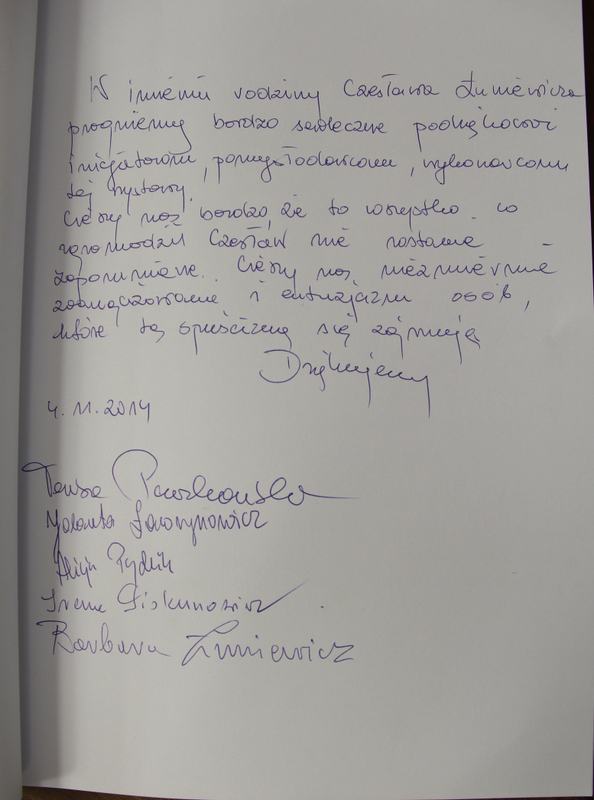 W imieniu rodziny Czesława Żuniewicza
pragniemy bardzo serdecznie podziękować
inicjatorom, pomysłodawcom, wykonawcom
tej wystawy.
Cieszy nas bardzo, że to wszystko co
zgromadził Czesław nie zostanie
zapomniane. Cieszy nas niezmiernie
zaangażowanie i entuzjazm osób,
które tą spuścizną się zajmują
Dziękujemy
4. 11. 2014
Teresa
Jolanta
Alicja
Irena Piskunowicz
Barbara Żuniewicz